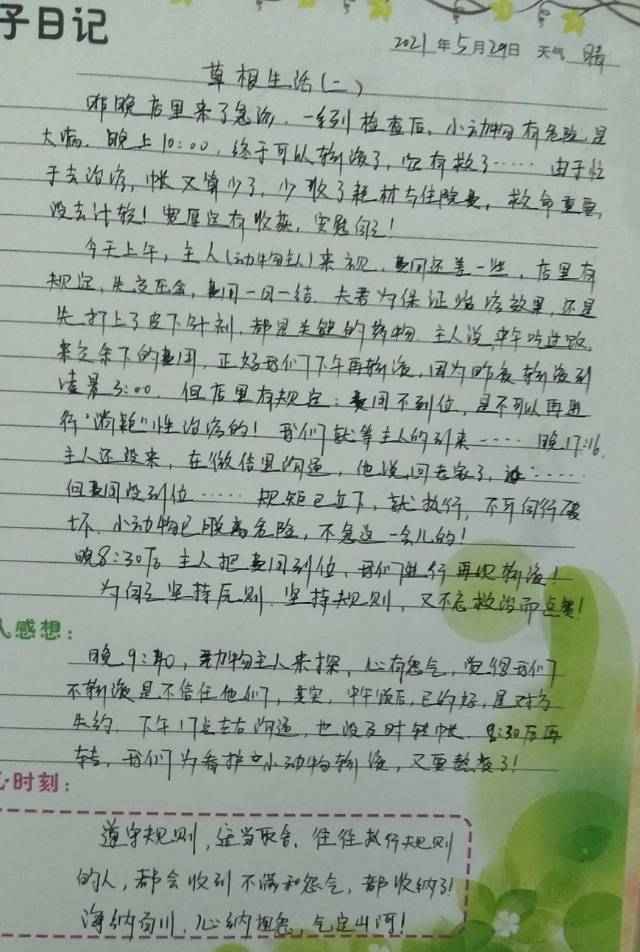 子日记
2021年5月29日 天气 晴
草根生活(二)
昨晚店里来了急诊,一经到检查后,小动物有危险,是
大病。晚上10:00,终于可以输液了,它有救了……由于忙
于去治疗,帐又算少了,少收了耗材与住院费,救命重要,
没去计较!宽厚定有收获,安慰自己!
今天上午,主人(动物主人)来视,费用还差一些,店里有
规定,先交压金,费用一日一结。夫君为保证治疗效果,还是
先打上了皮下针剂,都是关键的药物。主人说中午吃过饭
来交余下的费用,正好我们下午再输液,因为昨夜输液到
凌晨3:00。但店里有规定:费用不到位,是不可以再进
行"消耗"性治疗的!我们就等主人的到来……晚17:16,
主人还没来,在微信里沟通,他说回老家了,……
但费用没到位……规矩已立下,就执行,不可自行破
坏。小动物已脱离危险,不急这一会儿的!
晚8:30后主人把费用到位,我们进行再次输液!
为自己坚持原则,坚持规则,又不忘救治而点赞!
人感想:
晚9:40,动物主人来探,心有怨气,觉得我们
不输液是不信任他们,其实,中午饭后,已约好,是对方
失约。下午17点左右沟通,也没及时转帐。8:30后再
转,我们为看护小动物输液,又要熬夜了!
心时刻:
遵守规则,适当取舍。往往执行规则
的人,都会收到不满和怨气,都收纳了!
海纳百川,心纳怨,气定山河!